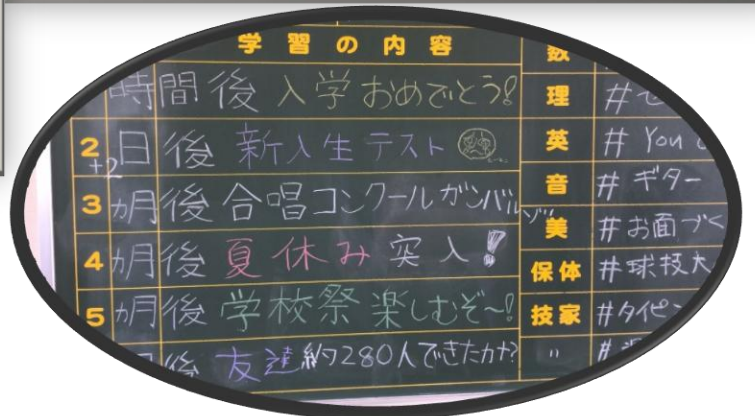 学習の内容
時間後 入学おめでとう!
2 +2 日後 新入生テスト
3 カ月後 合唱コンクールガンバルゾ!
4 カ月後 夏休み 突入!
5 カ月後 学校祭 楽しむぞ〜!
後 友達約280人できたカナ?
数
理 #
英 # You
音 # ギター
美 # お面づく
保体 # 球技大
技家 # タイピン
〃 #